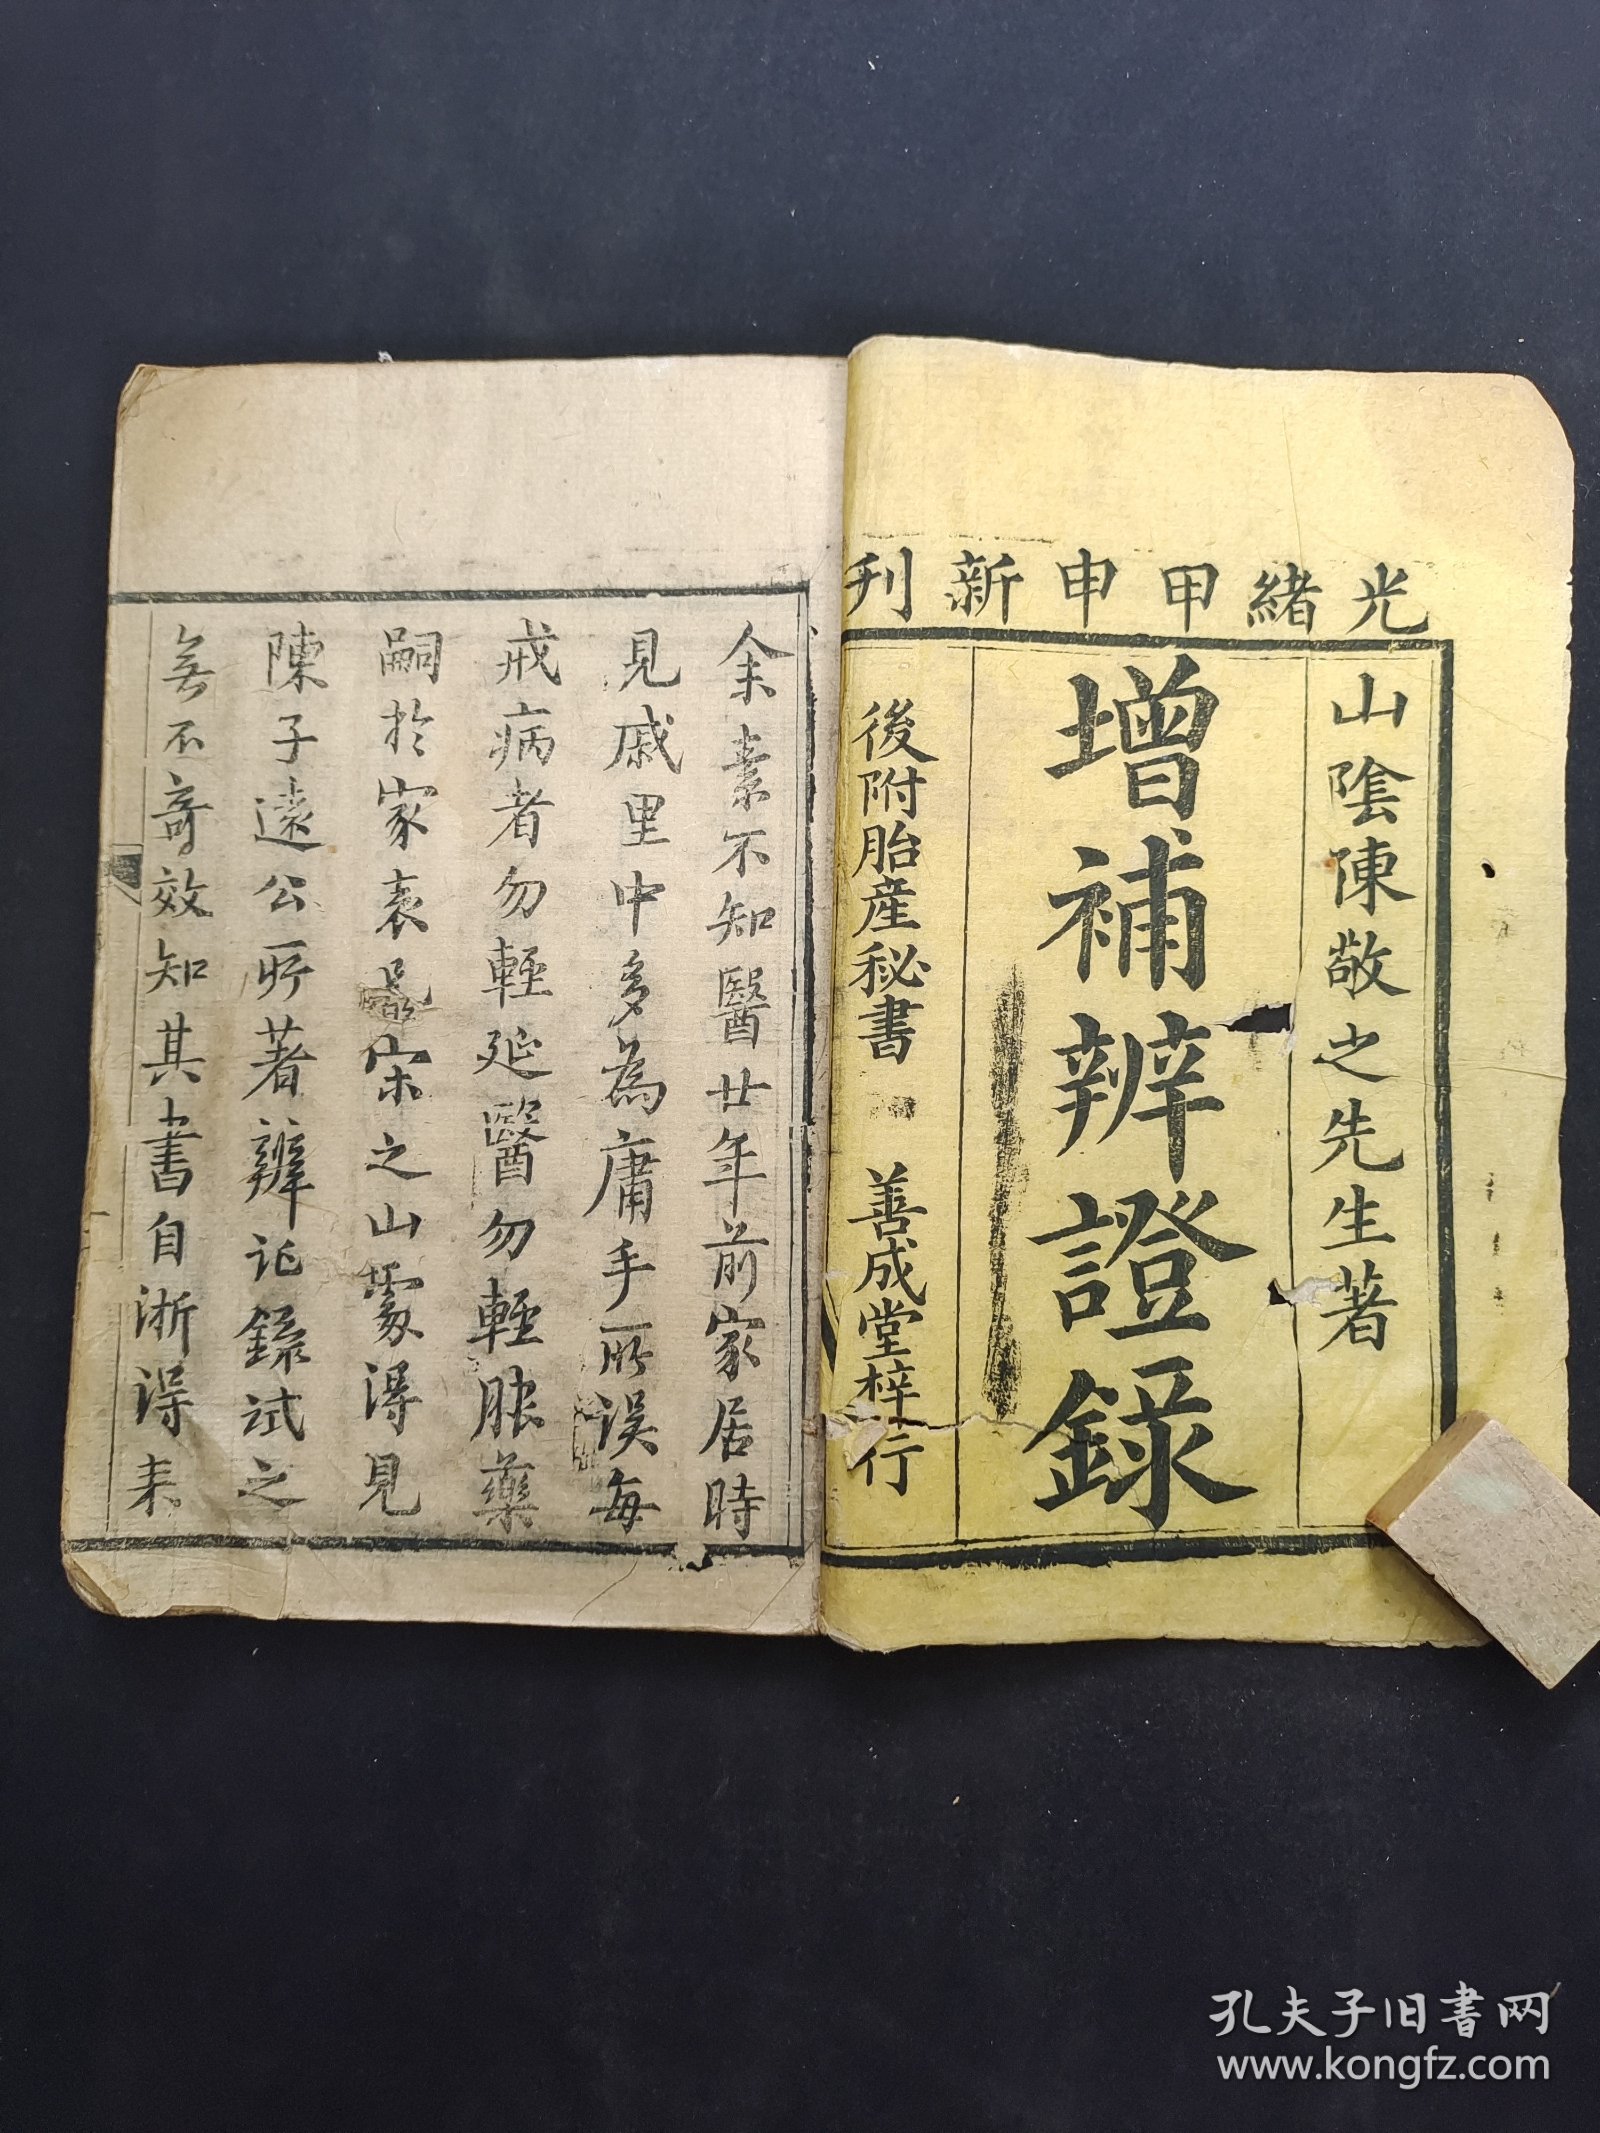 光緒甲申新刊
山陰陳敬之先生著
增補辨證錄
後附胎産秘書 善成堂梓行
余素不知醫廿年前家居時
見戚里中多為庸手所误每
戒病者勿輕延醫勿輕服藥
嗣於家表宋之山處得見
陳子遠公所著辨证錄試之
無不奇效知其書自浙得来
孔夫子旧书网
www.kongfz.com